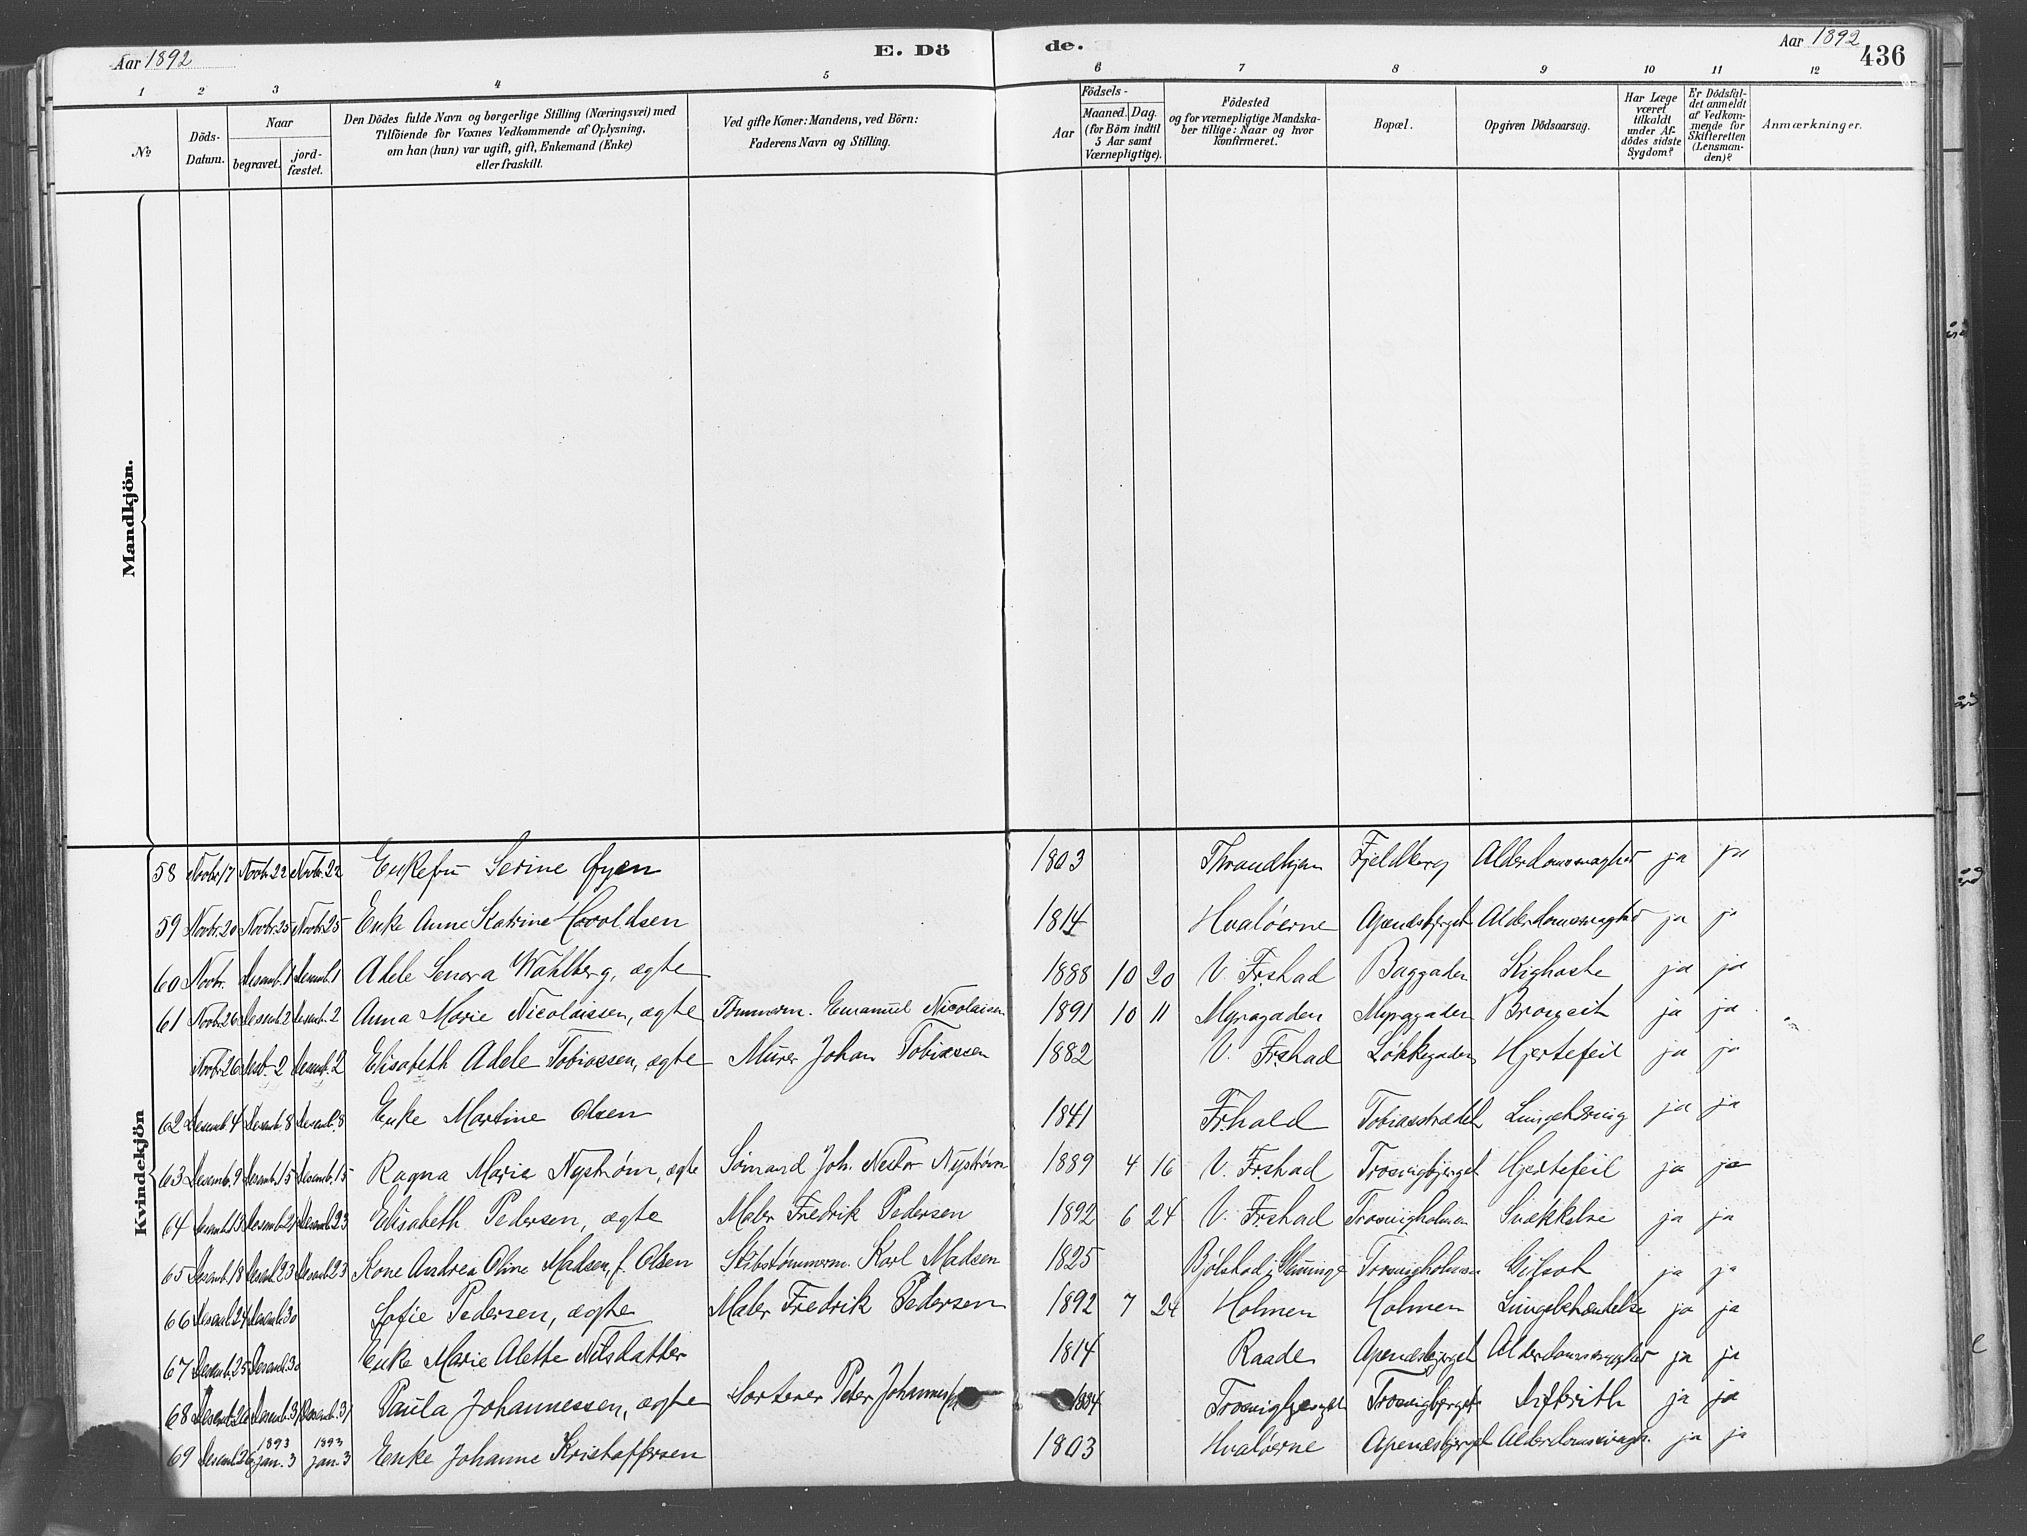 Aar 1892 E. Dö de. Aar 1892 436
1 2 3 4 5 6 7 8 9 10 11 12
No
Döds-Datum.
Naar
begravet.
jord-fæstet.
Den Dödes fulde Navn og borgerlige Stilling (Næringsvei) med
Tilföiende for Voxnes Vedkommende af Oplysning,
om han (hun) var ugift, gift, Enkemand (Enke)
eller fraskilt.
Ved gifte Koner: Mandens, ved Börn:
Faderens Navn og Stilling.
Födsels-
Aar
Maaned. Dag.
(for Börn indtil
5 Aar samt
Værnepligtige).
Födested
og for værnepligtige Mandska-
ber tillige: Naar og hvor
konfirmeret.
Bopæl.
Opgiven Dödsaarsag.
Har Læge
været
tilkaldt
under Af-
dödes sidste
Sygdom?
Er Dödsfal-
det anmeldt
af Vedkom-
mende for
Skifteretten
(Lensman-
den)?
Anmærkninger.
Mandkjön.
Kvindekjön
58 Novbr. 17 Novbr. 22 Novbr. 22 Enkefru Serine 1803 Throndhjem Fjeldberg ja ja
59 Novbr. 20 Novbr. 25 Novbr. 25 Enke Anne Katrine 1814 Hvaløerne Apenæsbjerget ja ja
60 Novbr. Desemb. 1 Desemb. 1 Adele Senora Wahlberg, ægte 1888 10 20 V. Fr.stad Baggaden Kighoste ja ja
61 Novbr. 26 Desemb. 2 Desemb. 2 Anna Marie Nicolaissen, ægte Tømmerm. Emanuel Nicolaisen 1891 10 11 Myragaden Myragaden ja ja
Novbr. 26 Desb. 2 Desemb. 2 Elisabeth Adele Tobiassen, ægte Murer Johan Tobiassen 1882 V. Fr.stad Løkkegaden Hjertefeil ja ja
62 Desemb. 4 Desemb. 8 Desemb. 8 Enke Martine Olsen 1841 Fr.hald Tobiasstrædet ja ja
63 Desemb. 9 Desemb. 15 Desemb. 15 Ragna Marie Nystrøm, ægte Sømand Joh. Nestor Nystrøm 1889 4 16 V. Fr.stad Trosvigbjerget Hjertefeil ja ja
64 Desemb. 13 Desemb. 21 Desemb. 23 Elisabeth Pedersen, ægte Maler Fredrik Pedersen 1892 6 24 V. Fr.stad Trosvigholmen Svækkelse ja ja
65 Desemb. 18 Desemb. 23 Desemb. 23 Kone Andrea Oline Madsen, f. Olsen Skibstømmerm. Karl Madsen 1825 Bjølstad i Glemminge Trosvigholmen Gulsot ja ja
66 Desemb. 24 Desemb. 30 Sofie Pedersen, ægte Maler Fredrik Pedersen 1892 7 24 Holmen Holmen Lungebetændelse ja ja
67 Desemb. 25 Desemb. 30 Enke Marie Alette Nilsdatter 1814 Raade Apenæsbjerget ja ja
68 Desemb. 26 Desemb. 31 Desemb. 31 Paula Johannessen, ægte Sorterer Peter Johannessen 1884 Trosvigbjerget Trosvigbjerget Difterith ja ja
69 Desemb. 26 1893 Jan. 3 1893 Jan. 3 Enke Johanne Kristoffersen 1803 Hvaløerne Apenæsbjerget Alderdomssvagh. ja ja